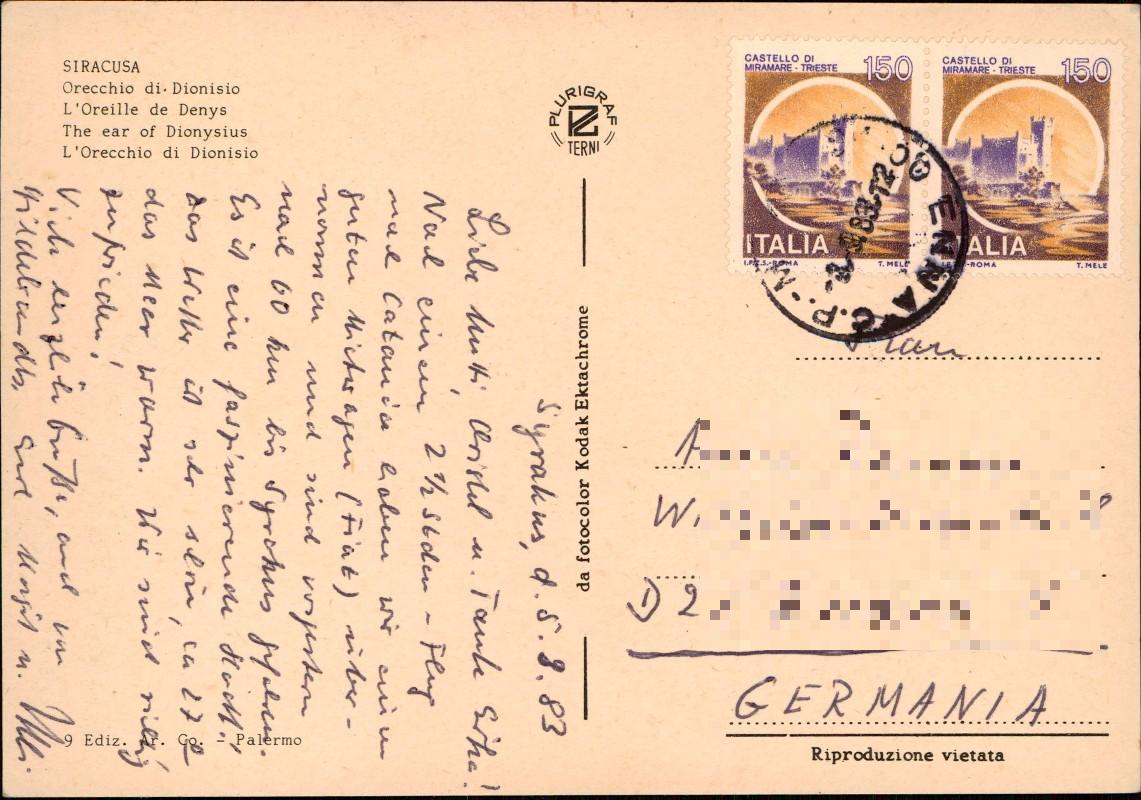 SIRACUSA
Orecchio di Dionisio
L'Oreille de Denys
The ear of Dionysius
L'Orecchio di Dionisio
PLURIGRAF
TERNI
CASTELLO DI
MIRAMARE - TRIESTE
150
ITALIA
I.P.Z.S.-ROMA T. MELE
CASTELLO DI
MIRAMARE - TRIESTE
150
ITALIA
I.P.Z.S.-ROMA T. MELE
ENNA C.P.
83-12
Syrakus, d. 5. 8. 83
Liebe Mutti Christel u. Tante Erika!
Nach einem 2 1/2 Stden - Flug
nach Catania haben wir einen
guten Mietwagen (Fiat) über-
nommen und sind vorgestern
noch 60 km bis Syrakus gefahren.
Es ist eine faszinierende Stadt!
Das Wetter ist sehr schön, ca 27°
das Meer warm. Wir sind richtig
zufrieden!
Viele herzliche Grüße, auch von
Hildebrandts, Eure Margit u.
da fotocolor Kodak Ektachrome
A
W.
D 2
GERMANIA
9 Ediz. Ar. Co. - Palermo
Riproduzione vietata